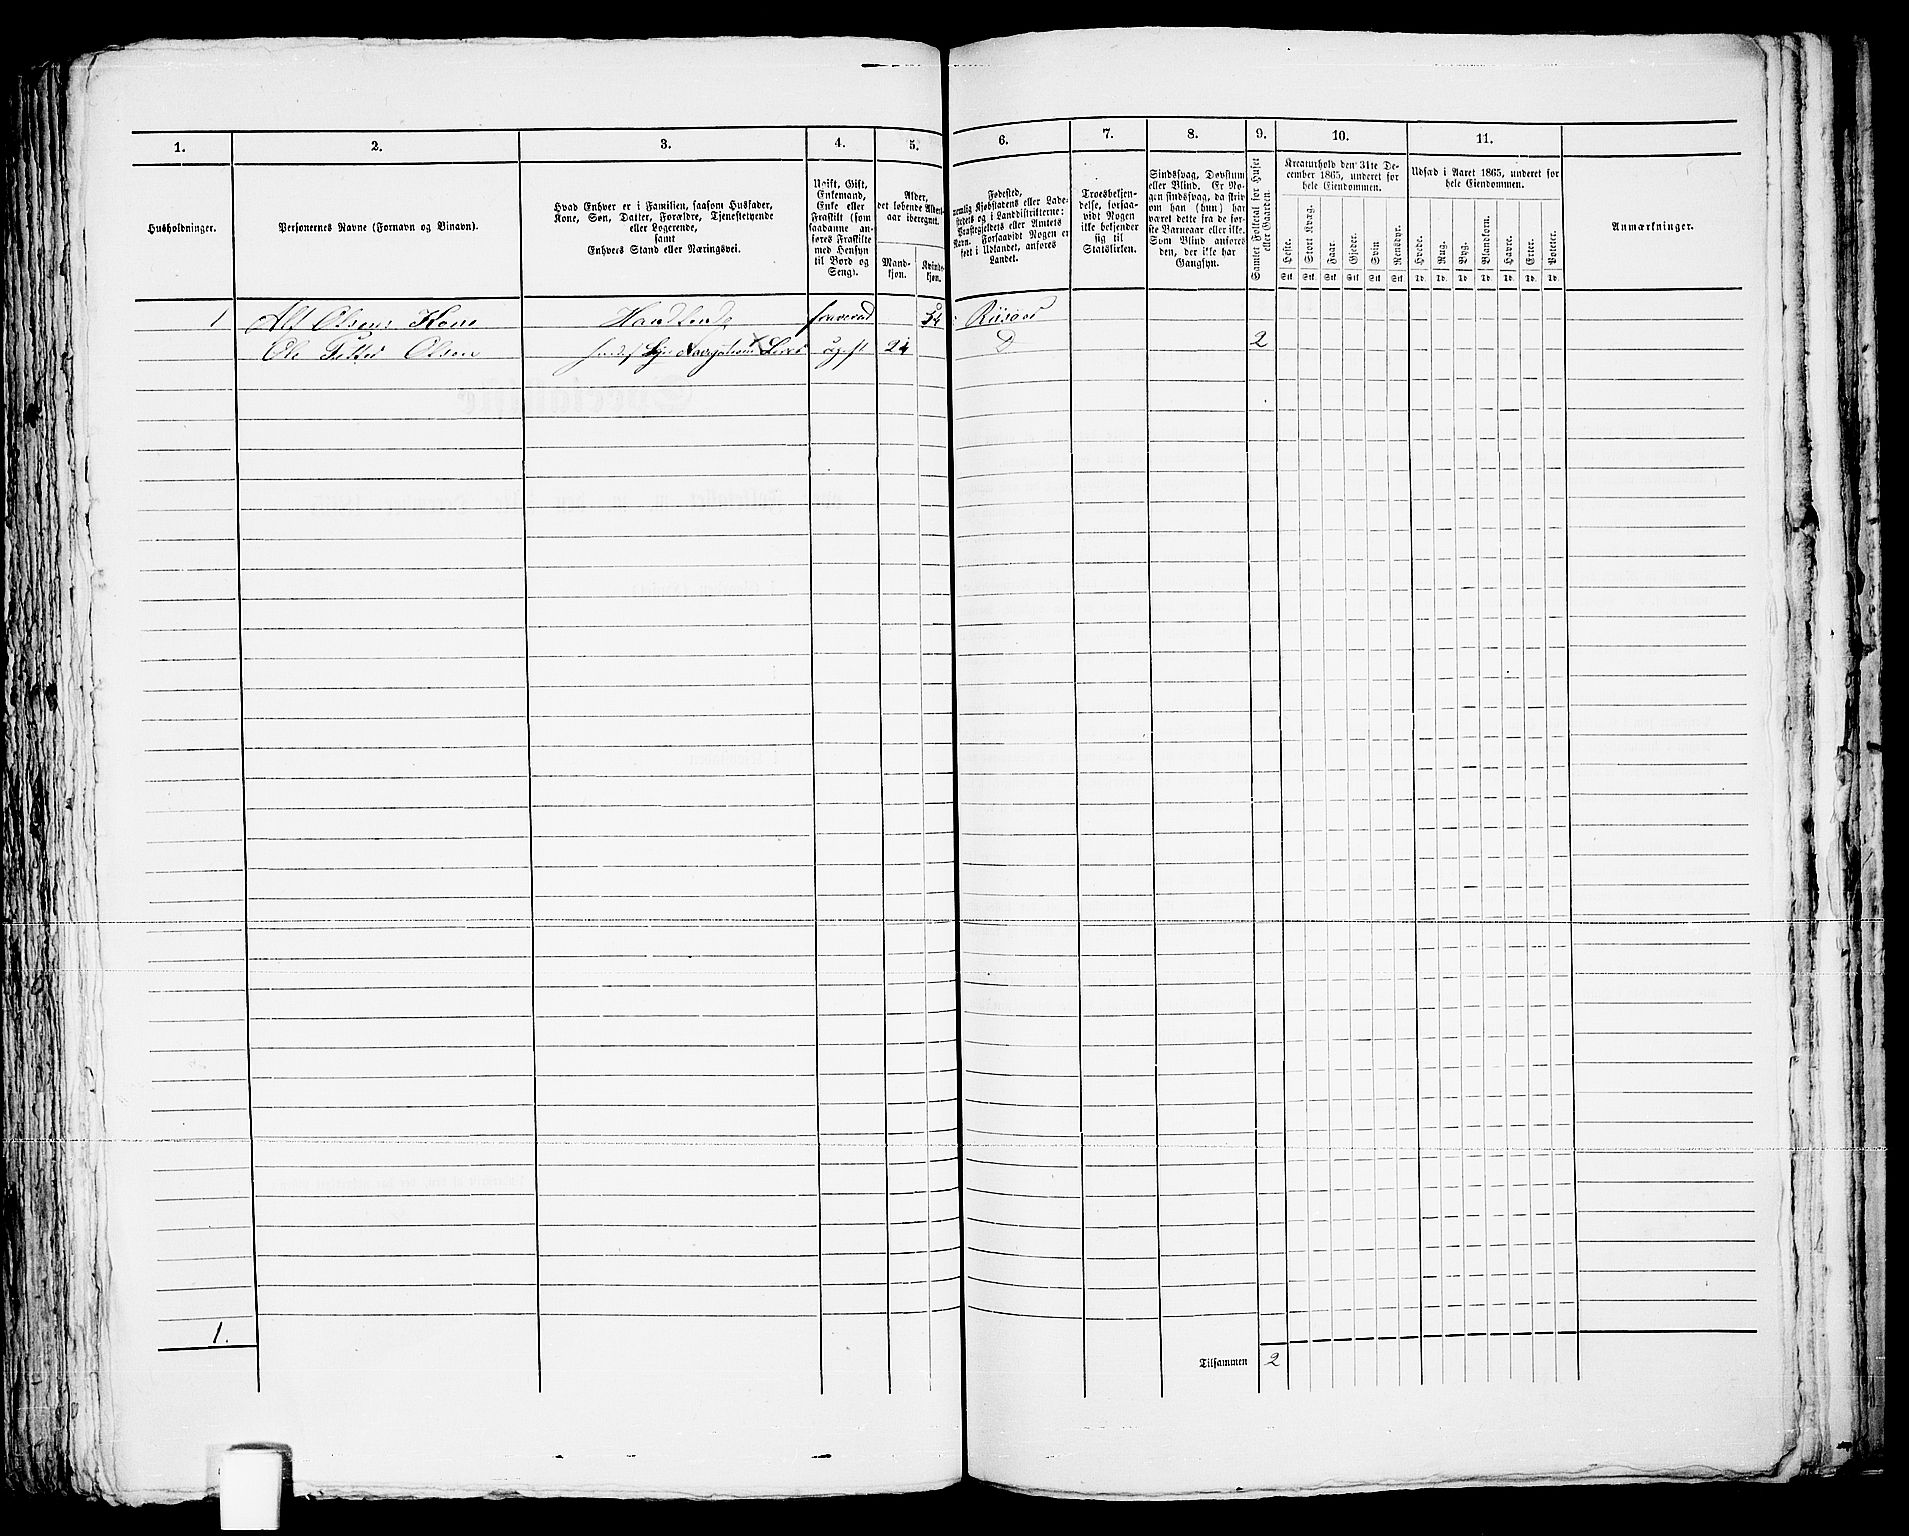 1. 2. 3. 4. 5. 6. 7. 8. 9. 10. 11.
Husholdninger.
Personernes Navne (Fornavn og Tilnavn).
Hvad Enhver er i Familien, saasom Husfader,
Kone, Søn, Datter, Forældre, Tjenestetyende
eller Logerende,
samt
Enhvers Stand eller Næringsvei.
Ugift, Gift,
Enkemand,
Enke eller
Fraskilt (som
saadanne an-
føres Fraskilte
med Hensyn
til Bord og
Seng).
Alder,
det løbende Alders-
aar iberegnet.
Mand-
kjøn.
Kvinde-
kjøn.
Fødested,
nemlig Kjøbstadens eller Lade-
stedets og i Landdistrikterne:
Præstegjeldets eller Amtets
Navn. Forsaavidt Nogen er
født i Udlandet, anføres
Landet.
Troesbekjen-
delse, forsaa-
vidt Nogen
ikke bekjender
sig til
Statskirken.
Sindssvag, Døvstum
eller Blind. Er No-
gen sindssvag, da skriv
om han (hun) har
været dette fra de før-
ste Barneaar eller ikke.
Som Blind anføres
den, der ikke har
Gangsyn.
Samlet Folketal for Huset
eller Gaarden.
Kreaturhold den 31te De-
cember 1865, underet for
hele Eiendommen.
Heste. Stort Kvæg. Faar. Gjeder. Svin Rensdyr.
Stk Stk Stk Stk Stk Stk
Udsæd i Aaret 1865, underet for
hele Eiendommen.
Hvede. Rug. Byg. Blandkorn. Havre. Erter. Poteter.
Td. Td. Td. Td. Td. Td. Td.
Anmærkninger.
1 Alf Olsens Kone Handlende fraværend 54 Riisøer
Ole Petter Olsen ugift 24 D 2
1.
Tilsammen 2